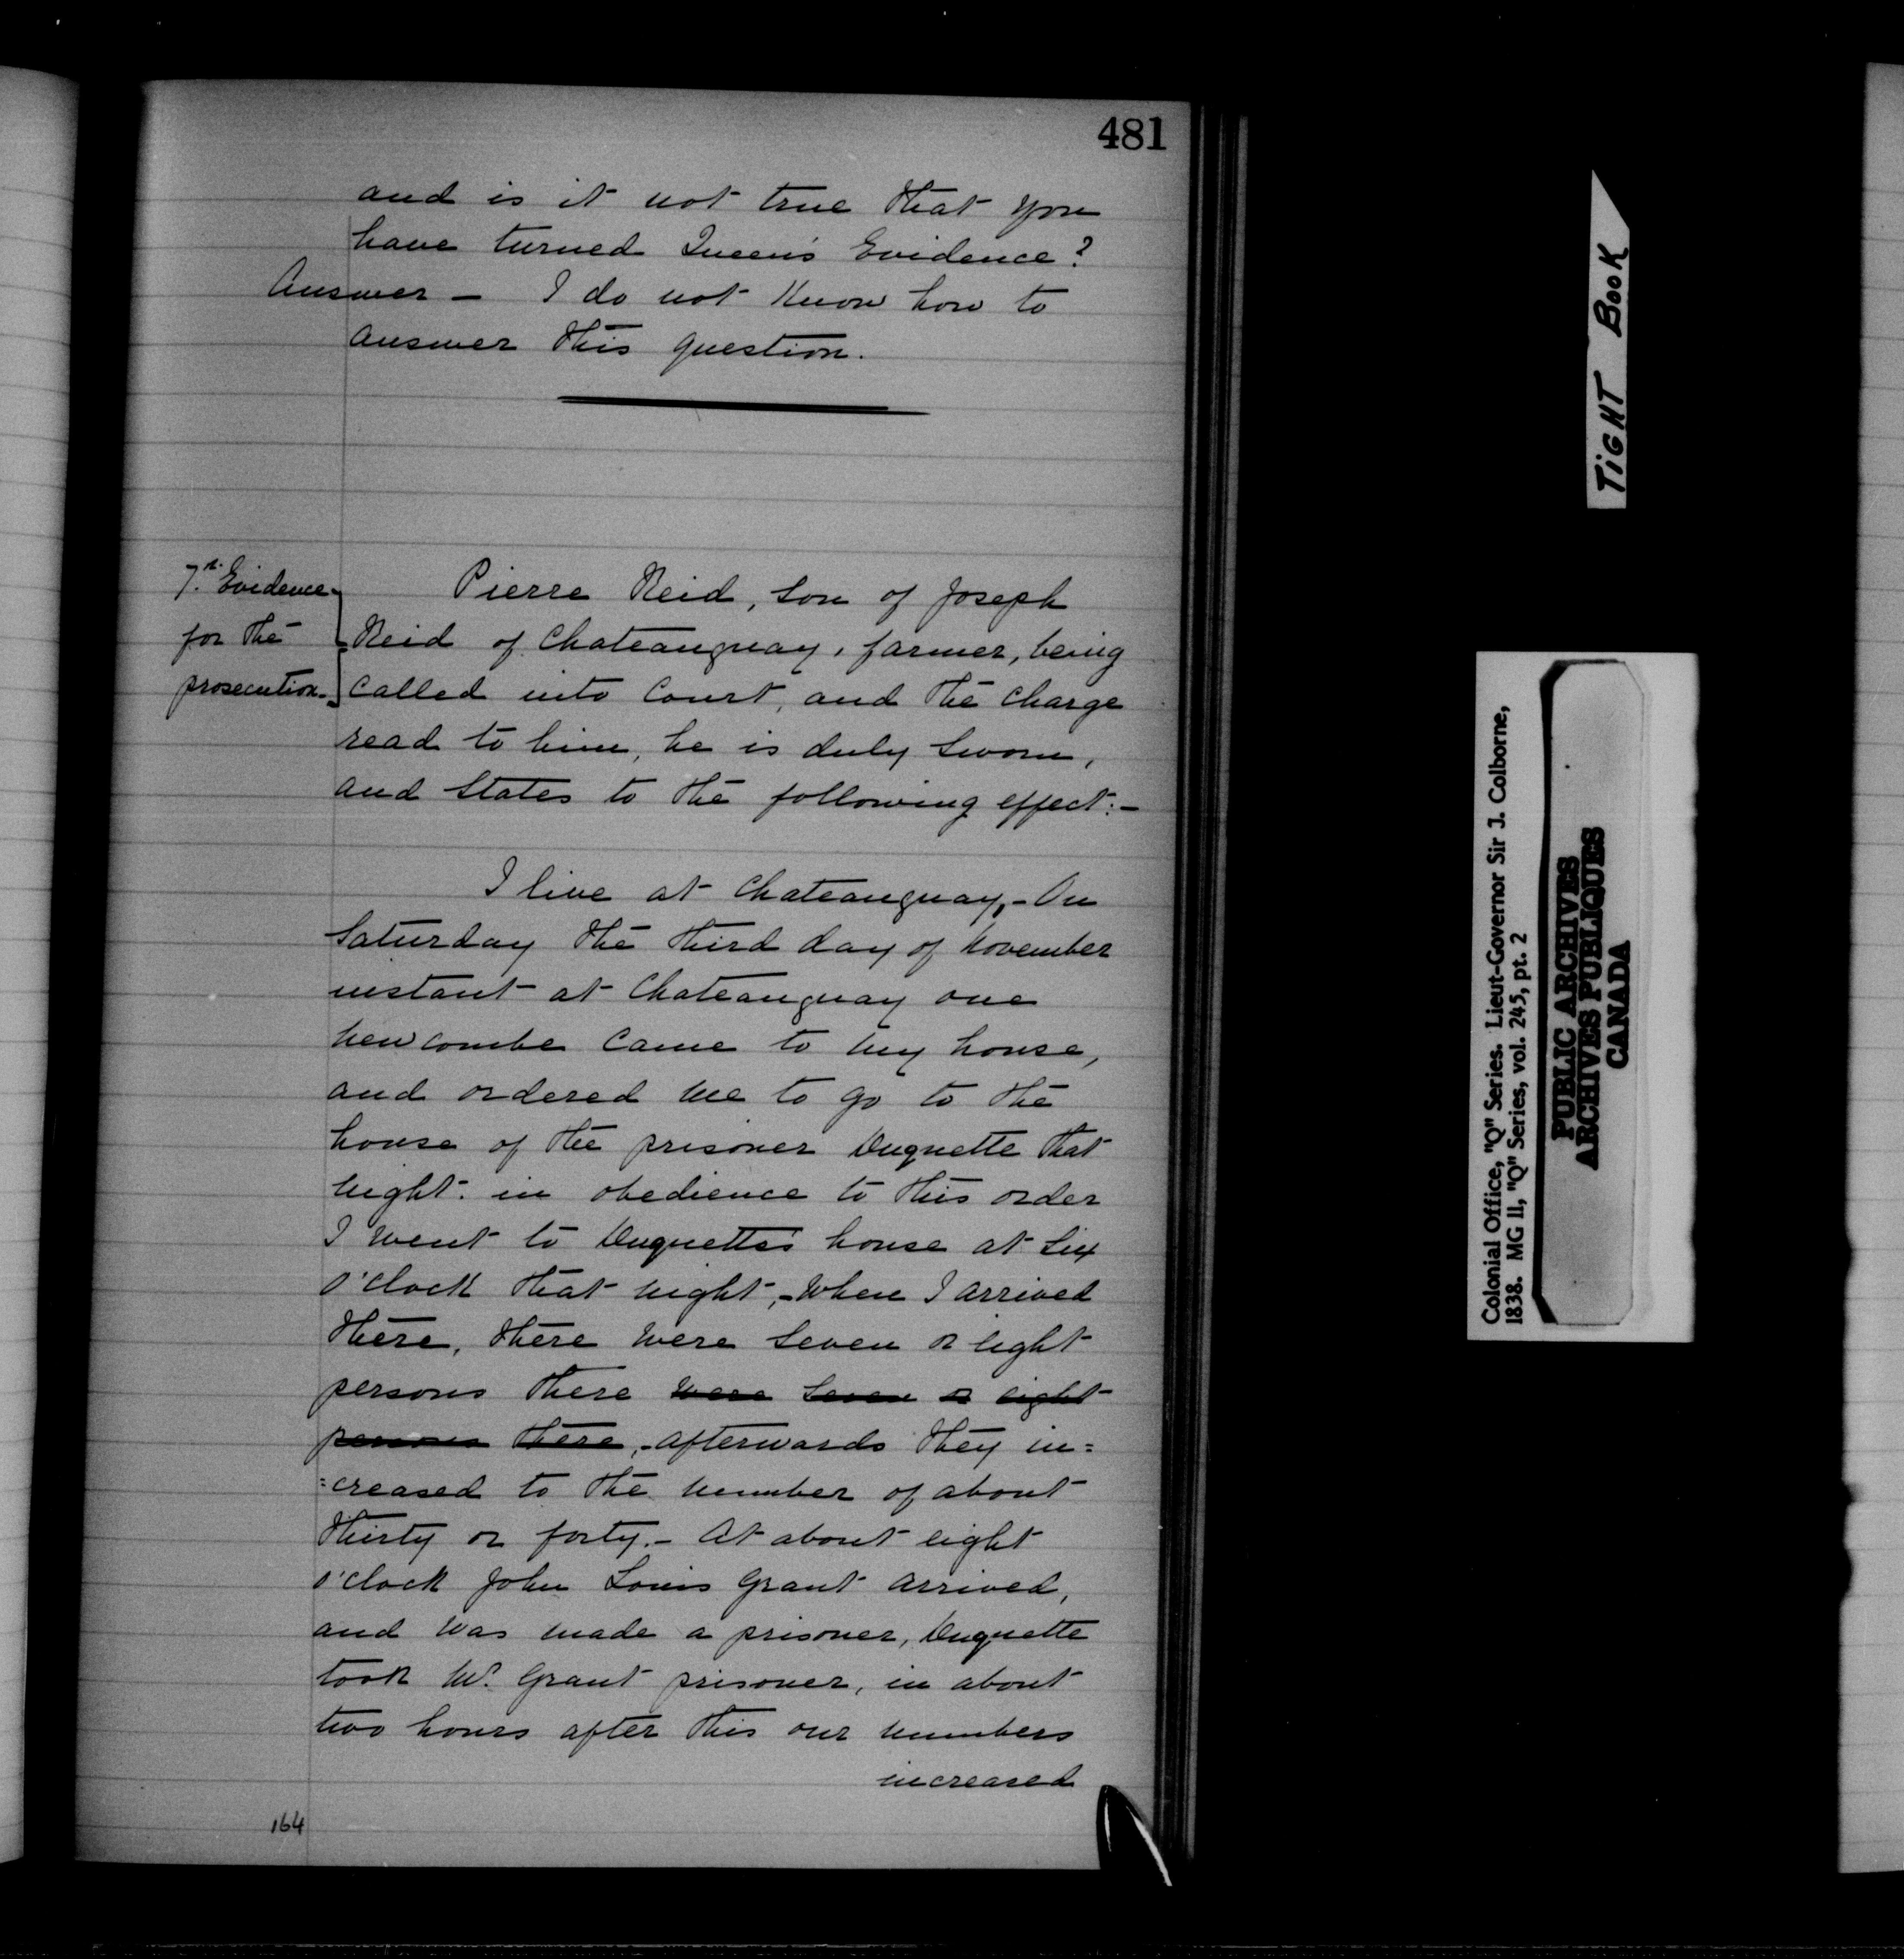 481
and is it not true that you
have turned Queen's Evidence?
Answer — I do not Know how to
answer this question.
7th Evidence
for the
prosecution.
Pierre Reid, Son of Joseph
Reid of Chateauguay, farmer, being
called into Court, and the Charge
read to him, he is duly Sworn,
and States to the following effect:—
I live at Chateauguay, - On
Saturday the third day of November
instant at Chateauguay one
Newcombe Came to my house,
and ordered me to go to the
house of the prisoner Duquette that
night: in obedience to this order
I went to Duquette's house at Six
o'clock that night, - When I arrived
there, there were Seven or eight
persons there were Seven or eight
persons there, - afterwards they in=
=creased to the number of about
thirty or forty. - At about eight
o'clock John Louis Grant arrived,
and was made a prisoner, Duquette
took Mr. Grant prisoner, in about
two hours after this our numbers
increased
164
TiGHT BooK
Colonial Office, "Q" Series. Lieut-Governor Sir J. Colborne,
1838. MG 11, "Q" Series, vol. 245, pt. 2
PUBLIC ARCHIVES
ARCHIVES PUBLIQUES
CANADA